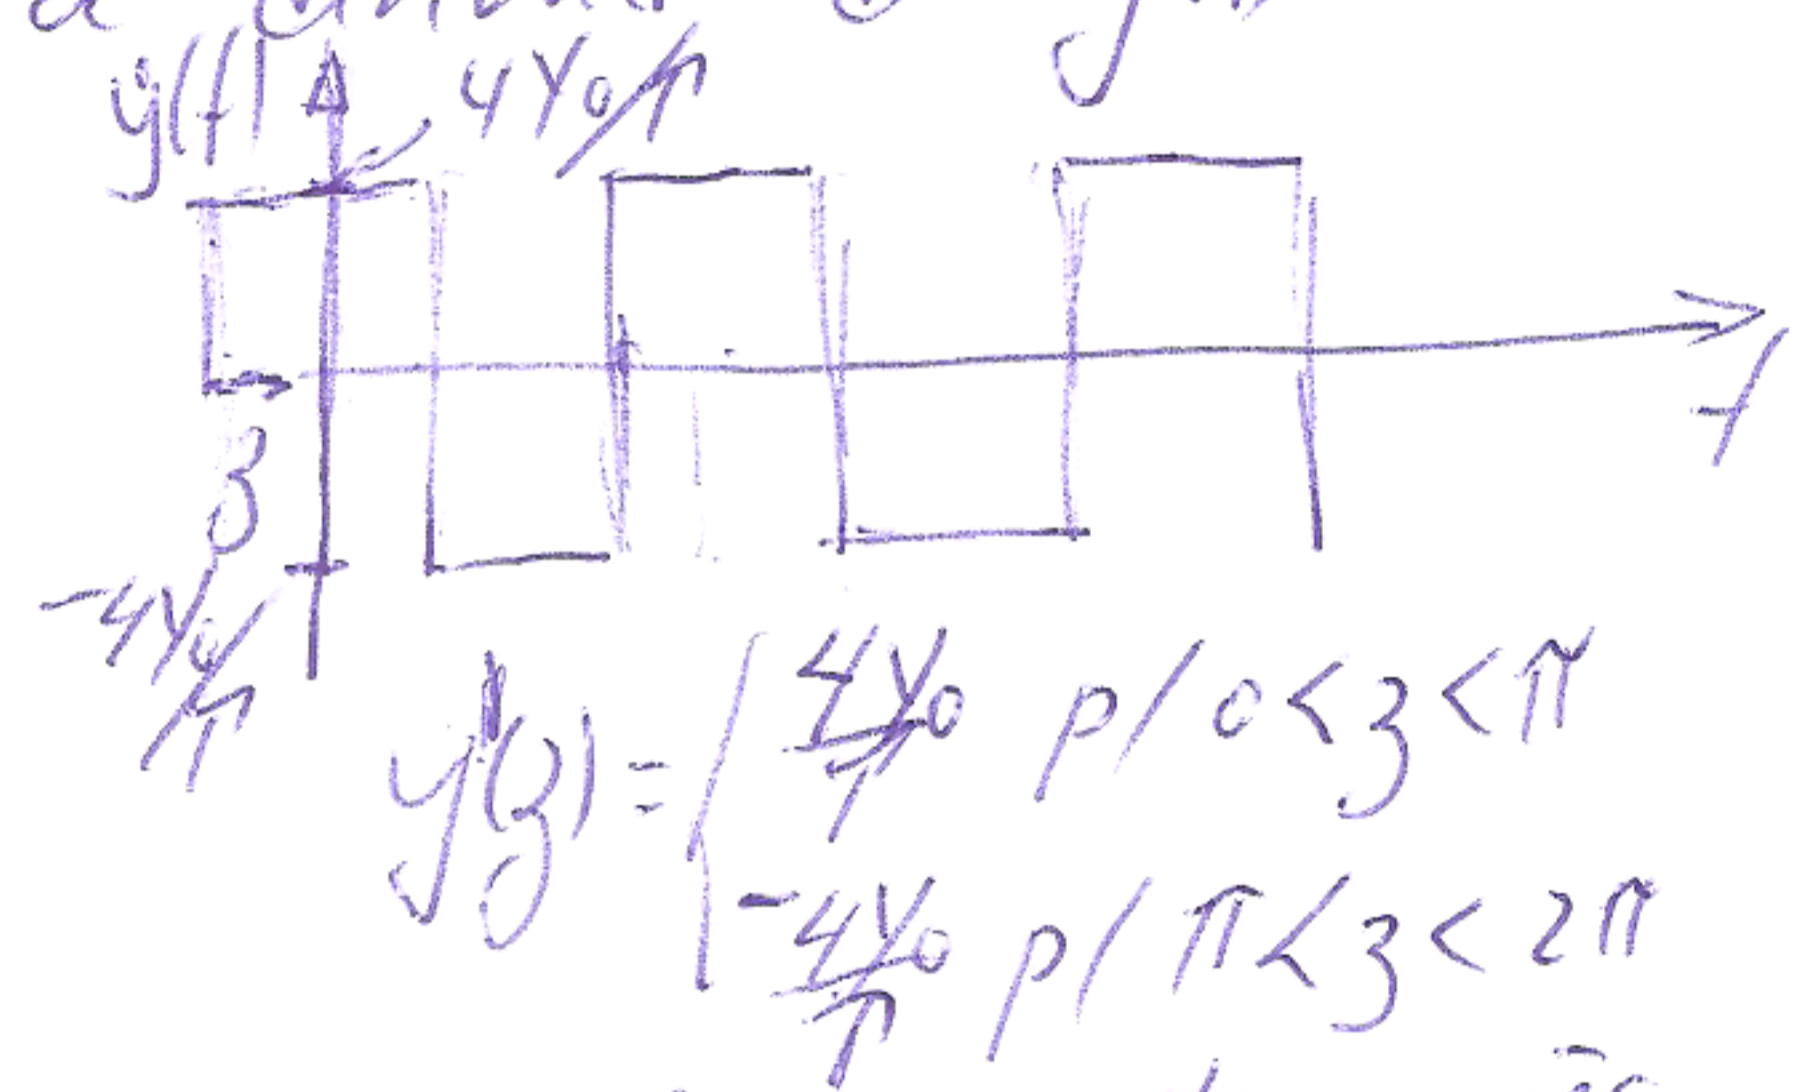 ẏ(t) 4Y₀/π
t
z
-4Y₀/π
ẏ(z) = { 4Y₀/π p/ 0 < z < π
-4Y₀/π p/ π < z < 2π